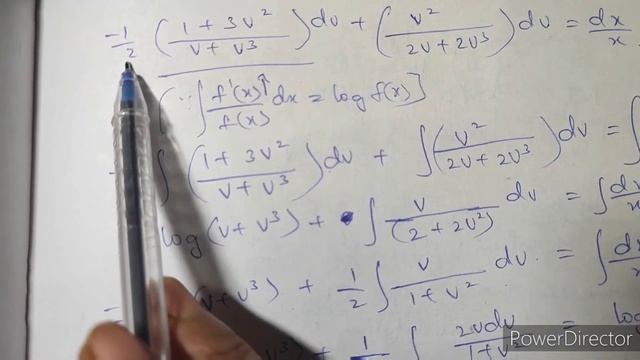 -1/2 (1 + 3v²/v + v³) dv + (v²/2v + 2v³) dv = dx/x
(∵ ∫ f'(x)/f(x) dx = log f(x)]
∫ (1 + 3v²/v + v³) dv + ∫ (v²/2v + 2v³) dv = ∫
log (v + v³) + ∫ v/(2 + 2v²) dv = ∫ dx/x
- (v + v³) + 1/2 ∫ v/1 + v² dv = ∫ dx/x
v³) + 1/ ∫ 2v dv/1 + v² = log
PowerDirector